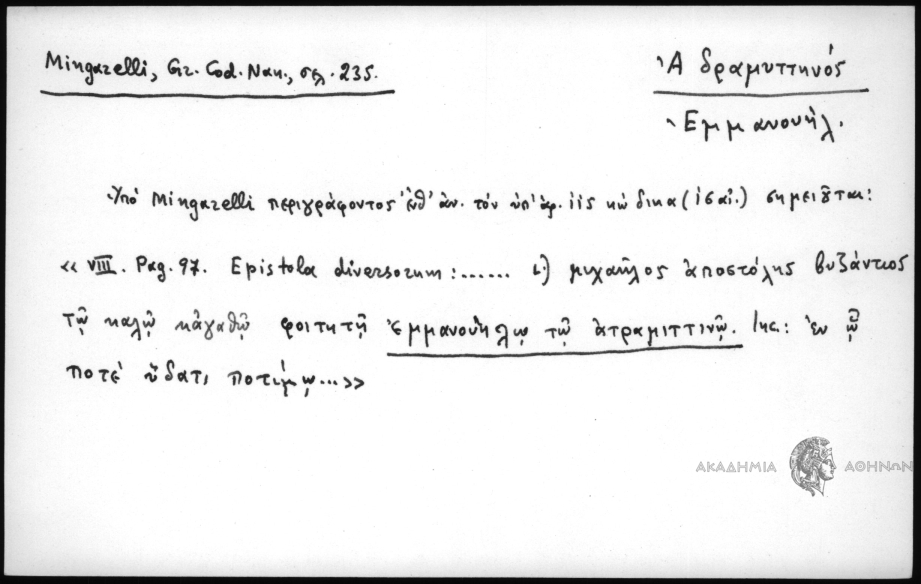 Mingarelli, Gr. Cod. Nan., σελ. 235.
Ἀδραμυττηνός
Ἐμμανουήλ.
Ὑπό Mingarelli περιγράφοντος ἐνθ' ἀν. τόν ὑπ' ἀρ. κώδικα (ις αἰ.) σημειοῦται:
« VIII. Pag. 97. Epistola diversorum: ...... μιχαῆλος ἀποστόλης βυζάντιος
τῷ καλῷ κἀγαθῷ φοιτητῇ ἐμμανουήλῳ τῷ ἀτραμιττινῷ. Inc.: ἐν ᾧ
ποτέ ὕδατι ποτίμῳ...»
ΑΚΑΔΗΜΙΑ ΑΘΗΝΩΝ